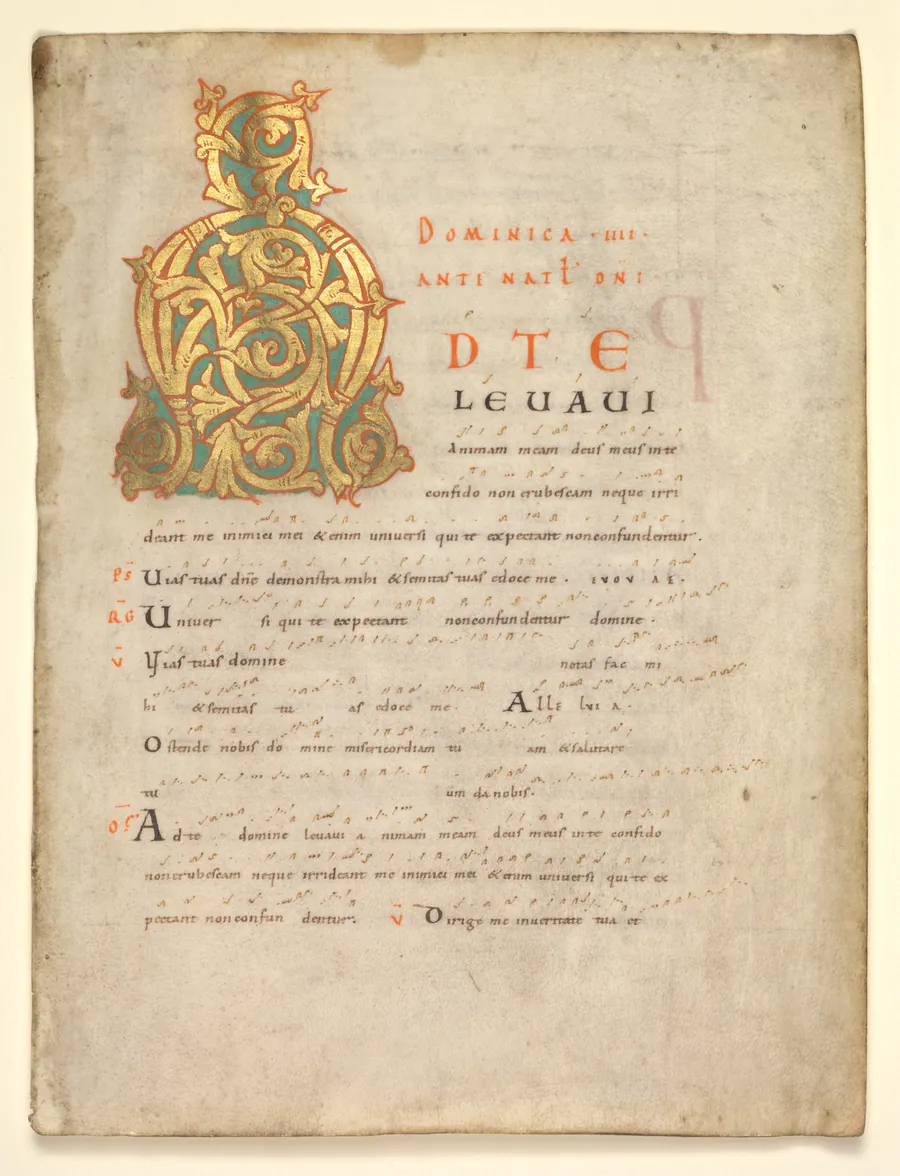 A
DOMINICA · IIII ·
ANTE NATL̄ DN̄I ·
D TE
LEUAUI
Animam meam deus meus inte
confido non erubescam neque irri
deant me inimici mei &enim universi qui te expectant nonconfundentur.
Ps Uias tuas dn̄e demonstra mihi &semitas tuas edoce me · EVOVAE ·
RG Univer si qui te expectant nonconfundentur domine ·
V Uias tuas domine notas fac mi
hi &semitas tu as edoce me · ALLE LVI A ·
Ostende nobis do mine misericordiam tu am &salutare
tu um da nobis.
OF Ad te domine leuaui a nimam meam deus meus inte confido
non erubescam neque irrideant me inimici mei &enim universi qui te ex
pectant nonconfun dentur. V Dirige me inueritate tua et